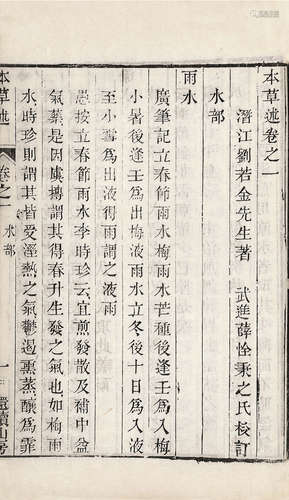 本草述卷之一
潛江劉若金先生著　武進薛恮秉之氏校訂
水部
雨水
廣筆記立春節雨水梅雨水芒種後逢壬爲入梅
小暑後逢壬爲出梅液雨水立冬後十日爲入液
至小雪爲出液得雨謂之液雨
愚按立春節雨水李時珍云宜煎發散及補中益
氣藥是因虞摶謂其得春升生發之氣也如梅雨
水時珍則謂其皆受溼熱之氣鬱遏熏蒸釀爲霏
本草述
卷之一
水部
一
還讀山房